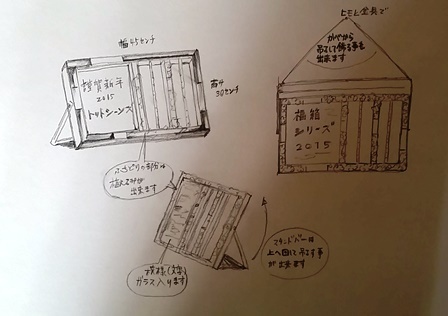 幅45センチ
謹賀新年
2015
トットシーンズ
高サ
30センチ
ふちどりの部分は
植え込みが
出来ます
模様(文字)
ガラス入ります
ヒモと金具で
かべから
吊して飾る事も
出来ます
福箱
シリーズ
2015
スタンドバーは
上へ回して吊るす事
が出来ます